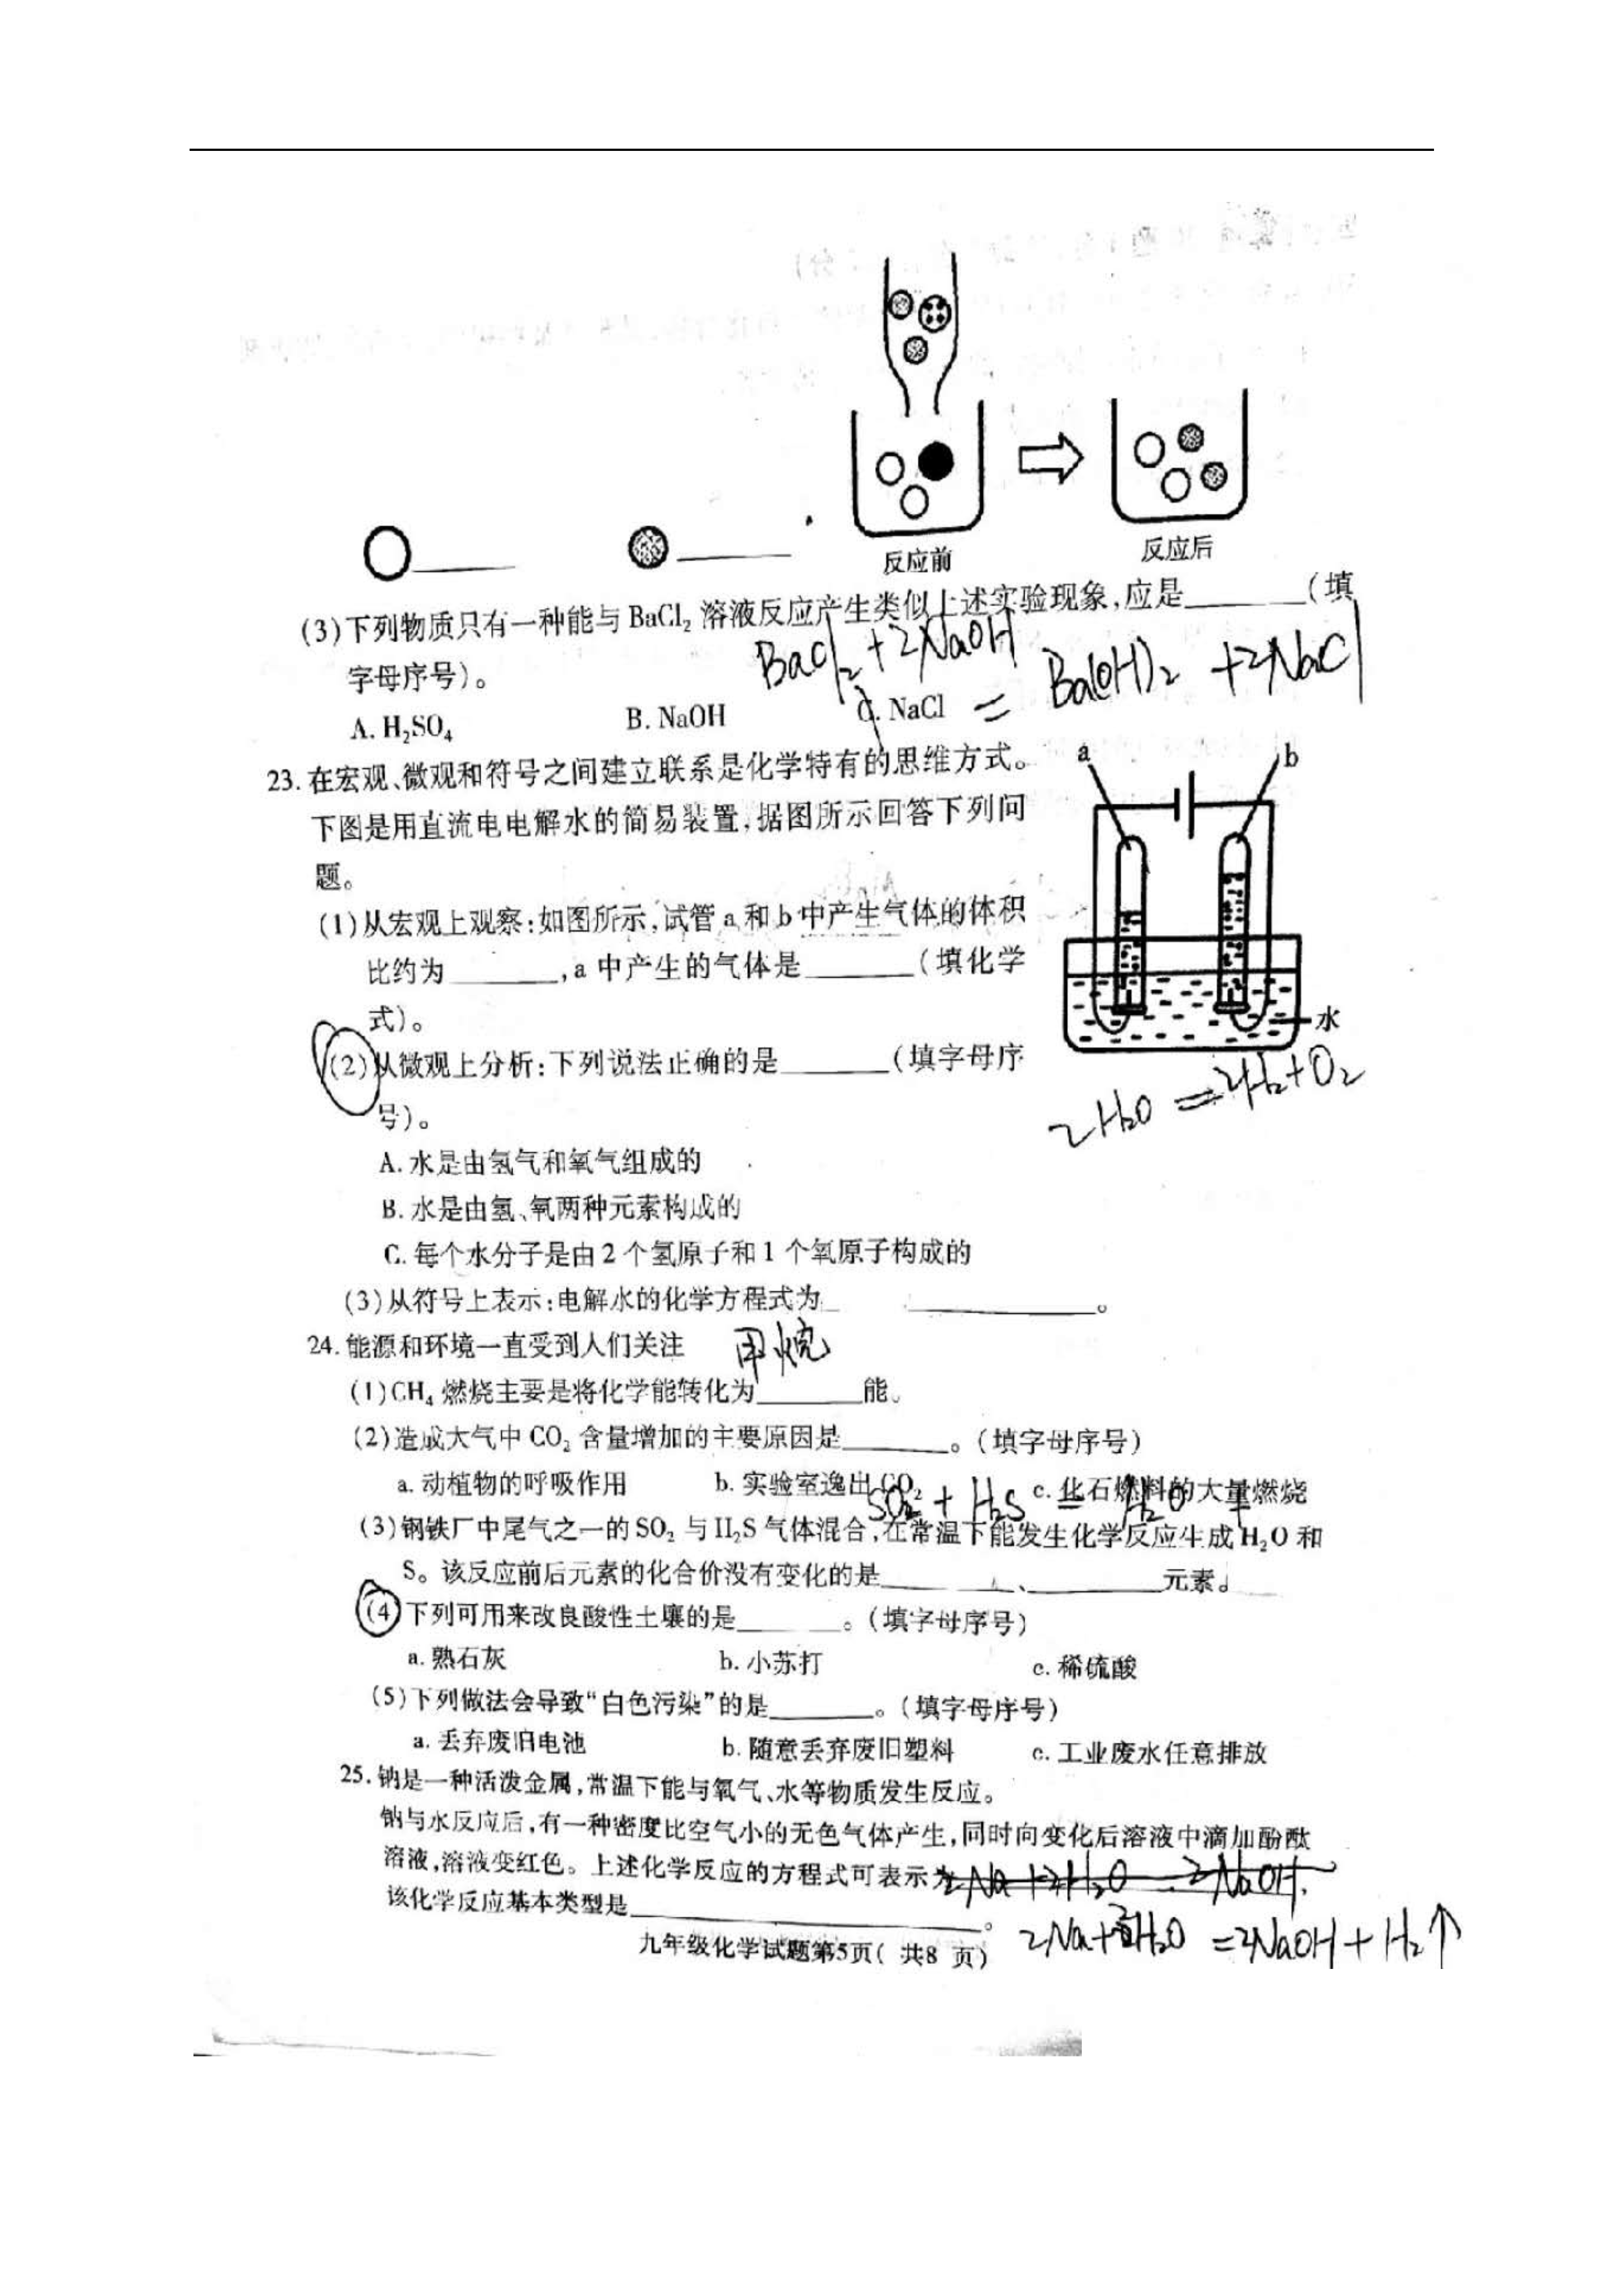 反应前
反应后
(3)下列物质只有一种能与 BaCl₂ 溶液反应产生类似上述实验现象,应是______(填
字母序号)。
BaCl₂+2NaOH = Ba(OH)₂ +2NaCl
A. H₂SO₄ B. NaOH C. NaCl
23. 在宏观、微观和符号之间建立联系是化学特有的思维方式。
下图是用直流电电解水的简易装置,据图所示回答下列问
题。
a b
水
(1)从宏观上观察:如图所示,试管 a 和 b 中产生气体的体积
比约为______,a 中产生的气体是______(填化学
式)。
(2)从微观上分析:下列说法正确的是______(填字母序
号)。
2H₂O = 2H₂+O₂
A. 水是由氢气和氧气组成的
B. 水是由氢、氧两种元素构成的
C. 每个水分子是由 2 个氢原子和 1 个氧原子构成的
(3)从符号上表示:电解水的化学方程式为__________。
24. 能源和环境一直受到人们关注
甲烷
(1)CH₄ 燃烧主要是将化学能转化为______能。
(2)造成大气中 CO₂ 含量增加的主要原因是______。(填字母序号)
a. 动植物的呼吸作用 b. 实验室逸出 CO₂ c. 化石燃料的大量燃烧
SO₂ + H₂S = H₂O +
(3)钢铁厂中尾气之一的 SO₂ 与 H₂S 气体混合,在常温下能发生化学反应生成 H₂O 和
S。该反应前后元素的化合价没有变化的是______、______元素。
(4)下列可用来改良酸性土壤的是______。(填字母序号)
a. 熟石灰 b. 小苏打 c. 稀硫酸
(5)下列做法会导致“白色污染”的是______。(填字母序号)
a. 丢弃废旧电池 b. 随意丢弃废旧塑料 c. 工业废水任意排放
25. 钠是一种活泼金属,常温下能与氧气、水等物质发生反应。
钠与水反应后,有一种密度比空气小的无色气体产生,同时向变化后溶液中滴加酚酞
溶液,溶液变红色。上述化学反应的方程式可表示为2Na+2H₂O 2NaOH
该化学反应基本类型是__________。
2Na+2H₂O =2NaOH+H₂↑
九年级化学试题第5页( 共8 页)